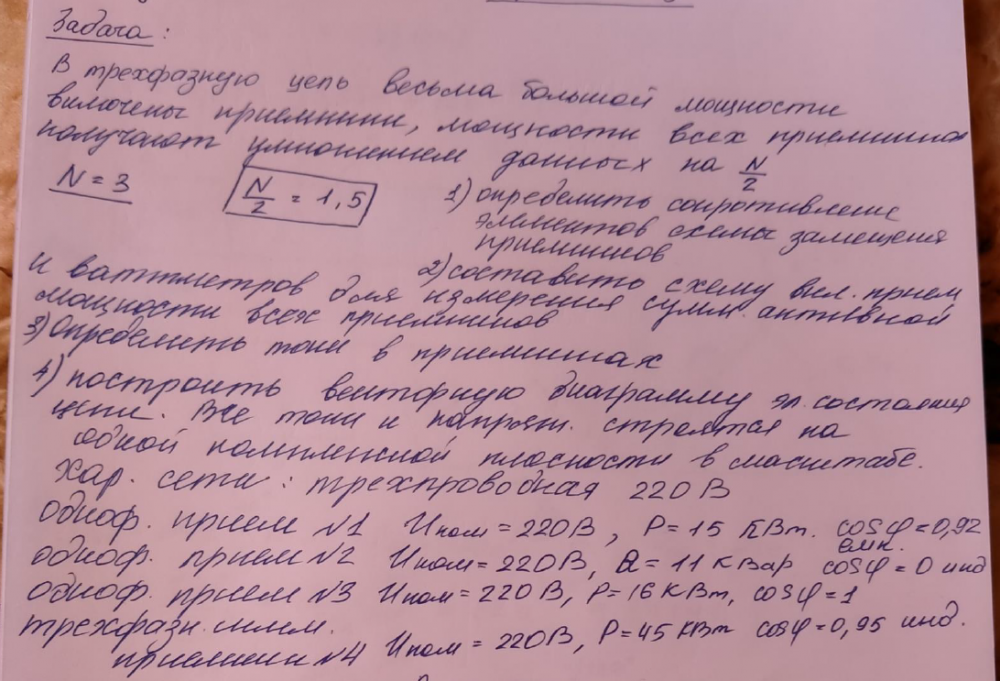 Задача:
В трехфазную цепь весьма большой мощности
включены приемники, мощности всех приемников
получают умножением данных на N/2
N = 3 N/2 = 1,5 1) определить сопротивление
элементов схемы замещения
приемников
2) составить схему вкл. прием
и ваттметров для измерения сумм. активной
мощности всех приемников
3) Определить токи в приемниках
4) построить векторную диаграмму эл. состояния
цепи. Все токи и напряж. строятся на
одной комплексной плоскости в масштабе.
Хар. сети: трехпроводная 220 В
одноф. прием №1 Uном = 220 В, P = 15 КВт. cosφ = 0,92
емк.
одноф. прием №2 Uном = 220 В, Q = 11 КВар cosφ = 0 инд
одноф. прием №3 Uном = 220 В, P = 16 КВт, cosφ = 1
трехфазн. симм.
приемник №4 Uном = 220 В, P = 45 КВт cosφ = 0,95 инд.